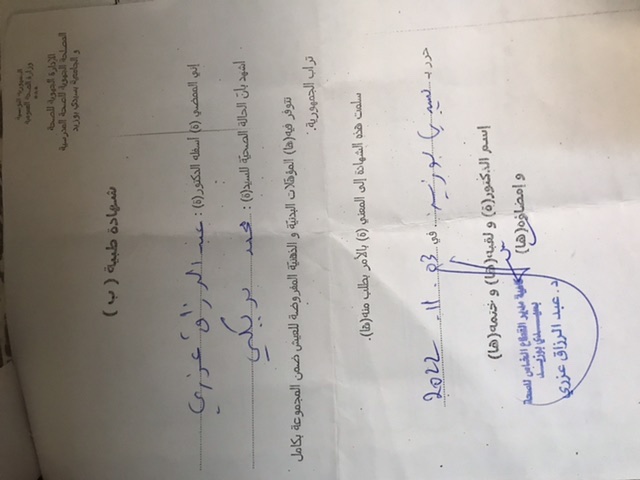 الجمهورية التونسية
وزارة الصحة العمومية
***
الإدارة الجهوية للصحة
المصلحة الجهوية للصحة المدرسية
و الجامعية بسيدي بوزيد
شهادة طبية ( ب )
إني الممضي (ة) أسفله الدكتور(ة) : عبد الرزاق عزري
أشهد بأن الحالة الصحية للسيد(ة) : محمد بريكي
تتوفر فيه(ها) المؤهلات البدنية و الذهنية المفروضة للعيش ضمن المجموعة بكامل
تراب الجمهورية.
سلمت هذه الشهادة إلى المعني (ة) بالأمر بطلب منه(ها).
حرر بـ سيدي بوزيد في 03 - 11 - 2022
إسم الدكتور(ة) و لقبه(ها) و ختمه(ها)
و إمضاؤه(ها)
بسيدي بوزيد
د. عبد الرزاق عزري